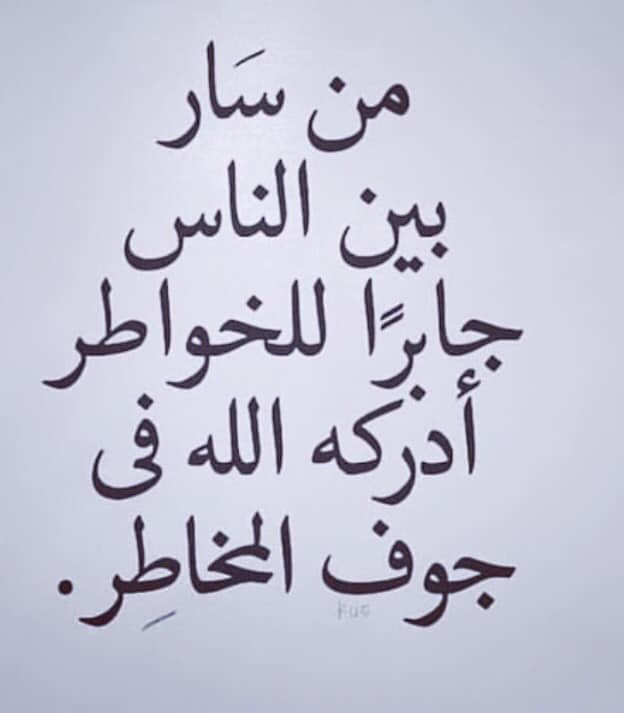 من سَار
بين الناس
جابرًا للخواطر
أدركه الله فى
جوف المخاطِر.